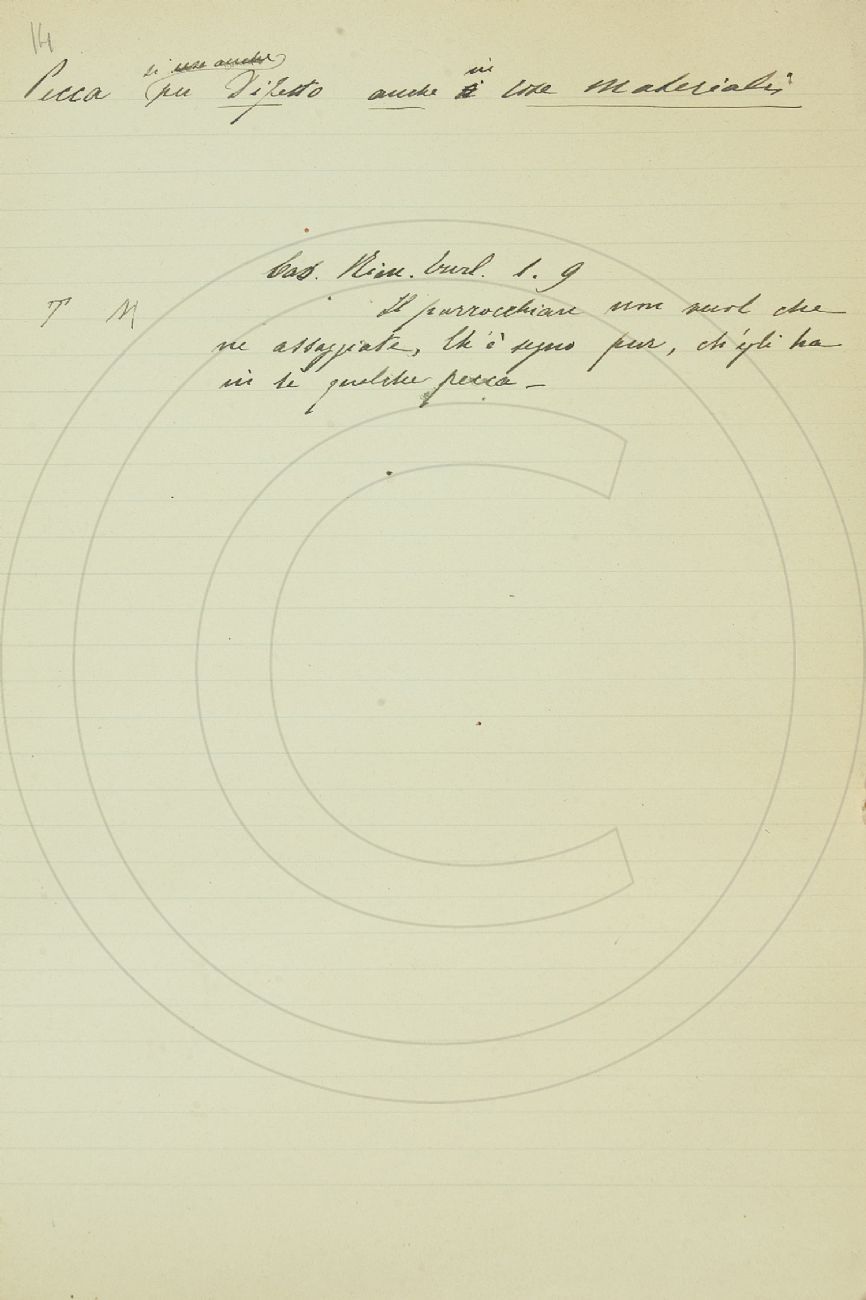 14
si usa anche
Pecca per Difetto anche in cose materiali
Cas. Rim. burl. 1. 9
T M Il parrocchian non vuol che
ne assaggiate, Ch'è segno pur, ch'egli ha
in sè qualche pecca –